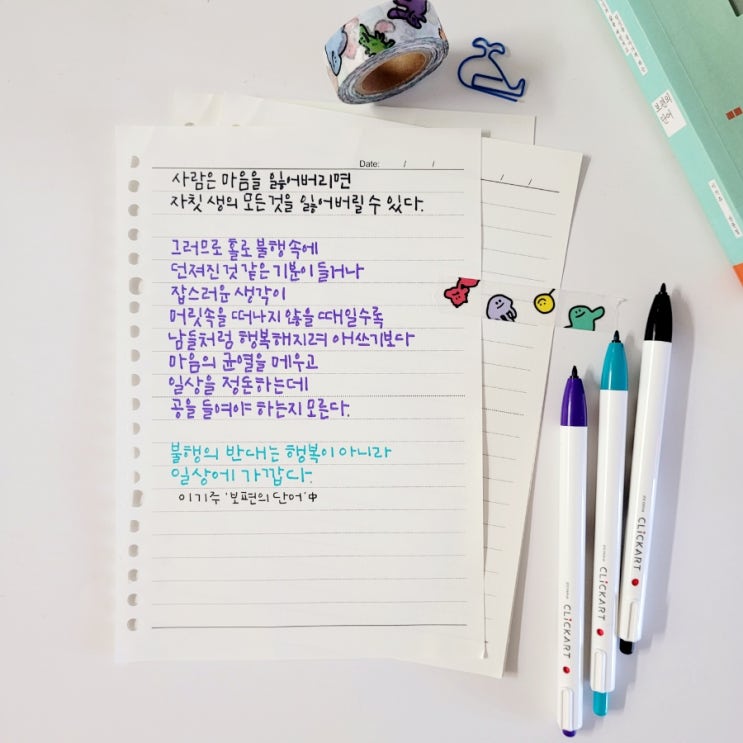 보편의
단어
Date: / /
/ /
사람은 마음을 잃어버리면
자칫 생의 모든것을 잃어버릴 수 있다.
그러므로 홀로 불행속에
던져진것 같은 기분이 들거나
잡스러운 생각이
머릿속을 떠나지 않을 때일수록
남들처럼 행복해지려 애쓰기보다
마음의 균열을 메우고
일상을 정돈하는데
공을 들여야 하는지 모른다.
불행의 반대는 행복이 아니라
일상에 가깝다.
이기주 '보편의 단어' 中
CLiCKART
CLiCKART
CLiCKART